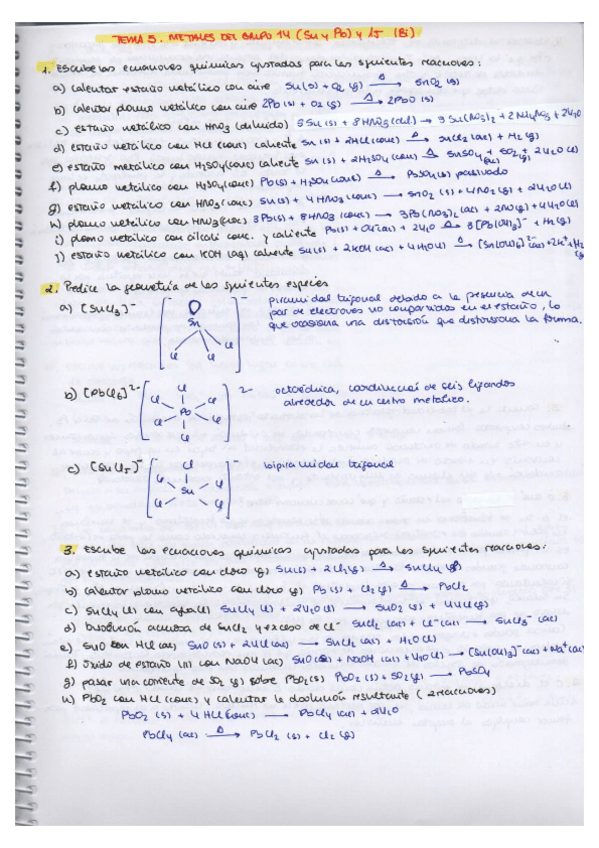 TEMA 5. METALES DEL GRUPO 14 (Sn y Pb) y 15 (Bi)
1. Escribe las ecuaciones químicas ajustadas para las siguientes reacciones:
a) calentar estaño metálico con aire Sn(s) + O2 (g) —Δ→ SnO2 (s)
b) calentar plomo metálico con aire 2Pb(s) + O2(g) —Δ→ 2PbO(s)
c) estaño metálico con HNO3 (diluido)
d) estaño metálico con HCl (conc) caliente Sn (s) + 2HCl(conc) —Δ→ SnCl2 (ac) + H2 (g)
e) estaño metálico con H2SO4(conc) caliente Sn (s) + 2H2SO4 (conc) —Δ→ SnSO4 (ac) + SO2 (g) + 2H2O(l)
f) plomo metálico con H2SO4(conc) Pb(s) + H2SO4(conc) → PbSO4(s) pasivado
g) estaño metálico con HNO3 (conc) Sn(s) + 4HNO3(conc) → SnO2 (s) + 4NO2(g) + 2H2O(l)
h) plomo metálico con HNO3(conc) 3Pb(s) + 8HNO3 (conc) → 3Pb(NO3)2 (ac) + 2NO(g) + 4H2O(l)
i) plomo metálico con álcali conc. y caliente Pb(s) + OH-(ac) + 2H2O —Δ→ [Pb(OH)3]- + H2(g)
j) estaño metálico con KOH (aq) caliente Sn(s) + 2KOH (ac) + 4H2O(l) —Δ→ [Sn(OH)6]2-(ac) + 2K+ + H2
2. Predice la geometría de las siguientes especies
a) [SnCl3]- piramidal trigonal debido a la presencia de un
par de electrones no compartidos en el estaño, lo
que ocasiona una distorsión que distorsiona la forma.
Sn
Cl Cl Cl
-
b) [PbCl6]2- octaédrica, coordinación de seis ligandos
alrededor de un centro metálico.
Cl
Cl Cl
Pb
Cl Cl
Cl
2-
c) [SnCl5]- bipiramidal trigonal
Cl
Cl Cl
Sn
Cl Cl
Cl
-
3. Escribe las ecuaciones químicas ajustadas para las siguientes reacciones:
a) estaño metálico con cloro (g) Sn(s) + 2Cl2(g) —Δ→ SnCl4
b) calentar plomo metálico con cloro (g) Pb (s) + Cl2 (g) —Δ→ PbCl2
c) SnCl4 (l) con agua(l) SnCl4 (l) + 2H2O (l) → SnO2 (s) + 4HCl(g)
d) Disolución acuosa de SnCl2 y exceso de Cl- SnCl2 (ac) + Cl-(ac) → SnCl3- (ac)
e) SnO con HCl(ac) SnO(s) + 2HCl(ac) → SnCl2(ac) + H2O(l)
f) óxido de estaño (II) con NaOH (ac) SnO(s) + NaOH (ac) + H2O(l) → [Sn(OH)3]-(ac) + Na+(ac)
g) pasar una corriente de SO2 (g) sobre PbO2(s) PbO2 (s) + SO2(g) → PbSO4
h) PbO2 con HCl (conc) y calentar la disolución resultante (2 reacciones)
PbO2 (s) + 4 HCl(conc) → PbCl4 (ac) + 2H2O
PbCl4 (ac) —Δ→ PbCl2 (s) + Cl2 (g)